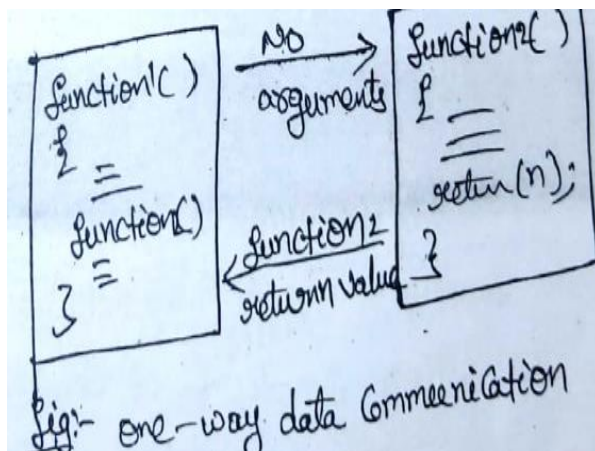 function1()
{
function2()
}
NO
arguments
function2
return value
function2()
{
retun(n);
}
fig:- one-way data Commeenication